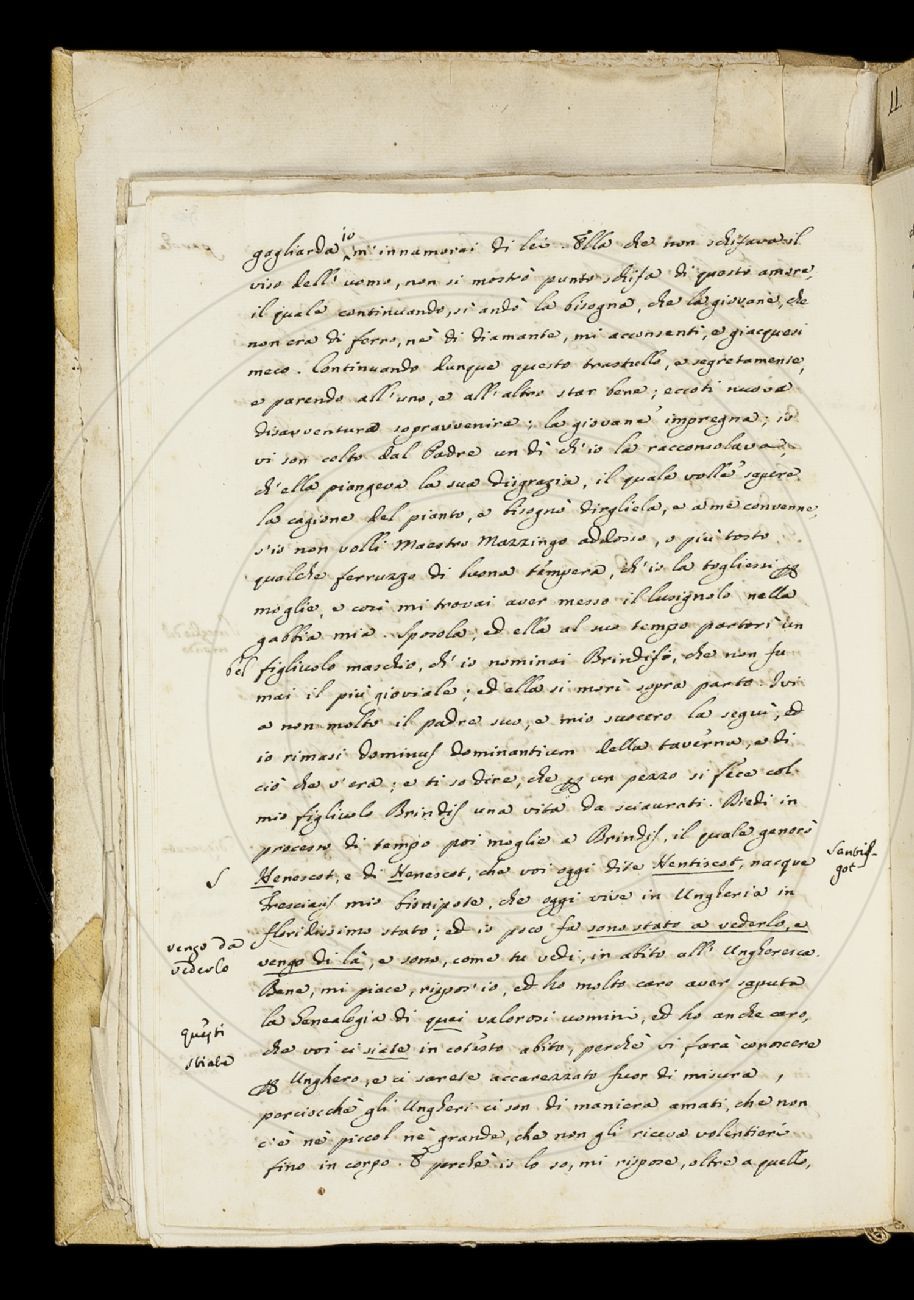 gagliarda io m'innamorai di lei. Ella che non schifava il
viso dell'uomo, non si mostrò punto schifa di questo amore,
il quale continuando, sì andò la bisogna, che la giovane, che
non era di ferro, nè di diamante, mi acconsentì, e giacquesi
meco. Continuando dunque questo trastullo, e segretamente,
e parendo all'uno, e all'altro star bene; eccoti nuova
disavventura sopravvenire: la giovane impregna; io
vi son colto dal Padre un dì ch'io la racconsolava,
ch'ella piangeva la sua disgrazia, il quale volle sapere
la cagione del pianto, e bisognò dirgliela, e a me convenne,
s'io non volli Maestro Mazzingo addosso, o più tosto
qualche ferruzzo di buona tempera, ch'io la togliessi p
moglie, e così mi trovai aver messo il lusignolo nella
gabbia mia. Sposola, ed ella al suo tempo partorì un
bel figliuolo maschio, ch'io nominai Brindisi, che non fu
mai il più gioviale; ed ella si morì sopra parto. Ivi
a non molto il padre suo, e mio suocero la seguì, ed
io rimasi dominus dominantium della taverna, e di
ciò che v'era; e ti so dire, che p un pezzo si fece col
mio figliuolo Brindis una vita da sciaurati. Diedi in
processo di tempo poi moglie a Brindis, il quale generò
S Henescot, e di Henescot, che voi oggi dite Hentiscot, nacque
Trescius mio bisnipote, che oggi vive in Ungheria in
floridissimo stato; ed io poco fa sono stato a vederlo, e
vengo da
vederlo
vengo di là, e sono, come tu vedi, in abito all'Ungheresca.
Bene, mi piace, rispos'io, ed ho molto caro aver saputa
la Genealogia di quai valorosi uomini, ed ho anche caro,
questi
che voi ci siate in cotesto abito, perchè vi farà conoscere
stiate
p Unghero, e ci sarete accarezzato fuor di misura,
perciocchè gli Ungheri ci son di maniera amati, che non
c'è nè piccol nè grande, che non gli riceva volentieri
fino in corpo. E perchè io lo so, mi rispose, oltre a quello,
11.